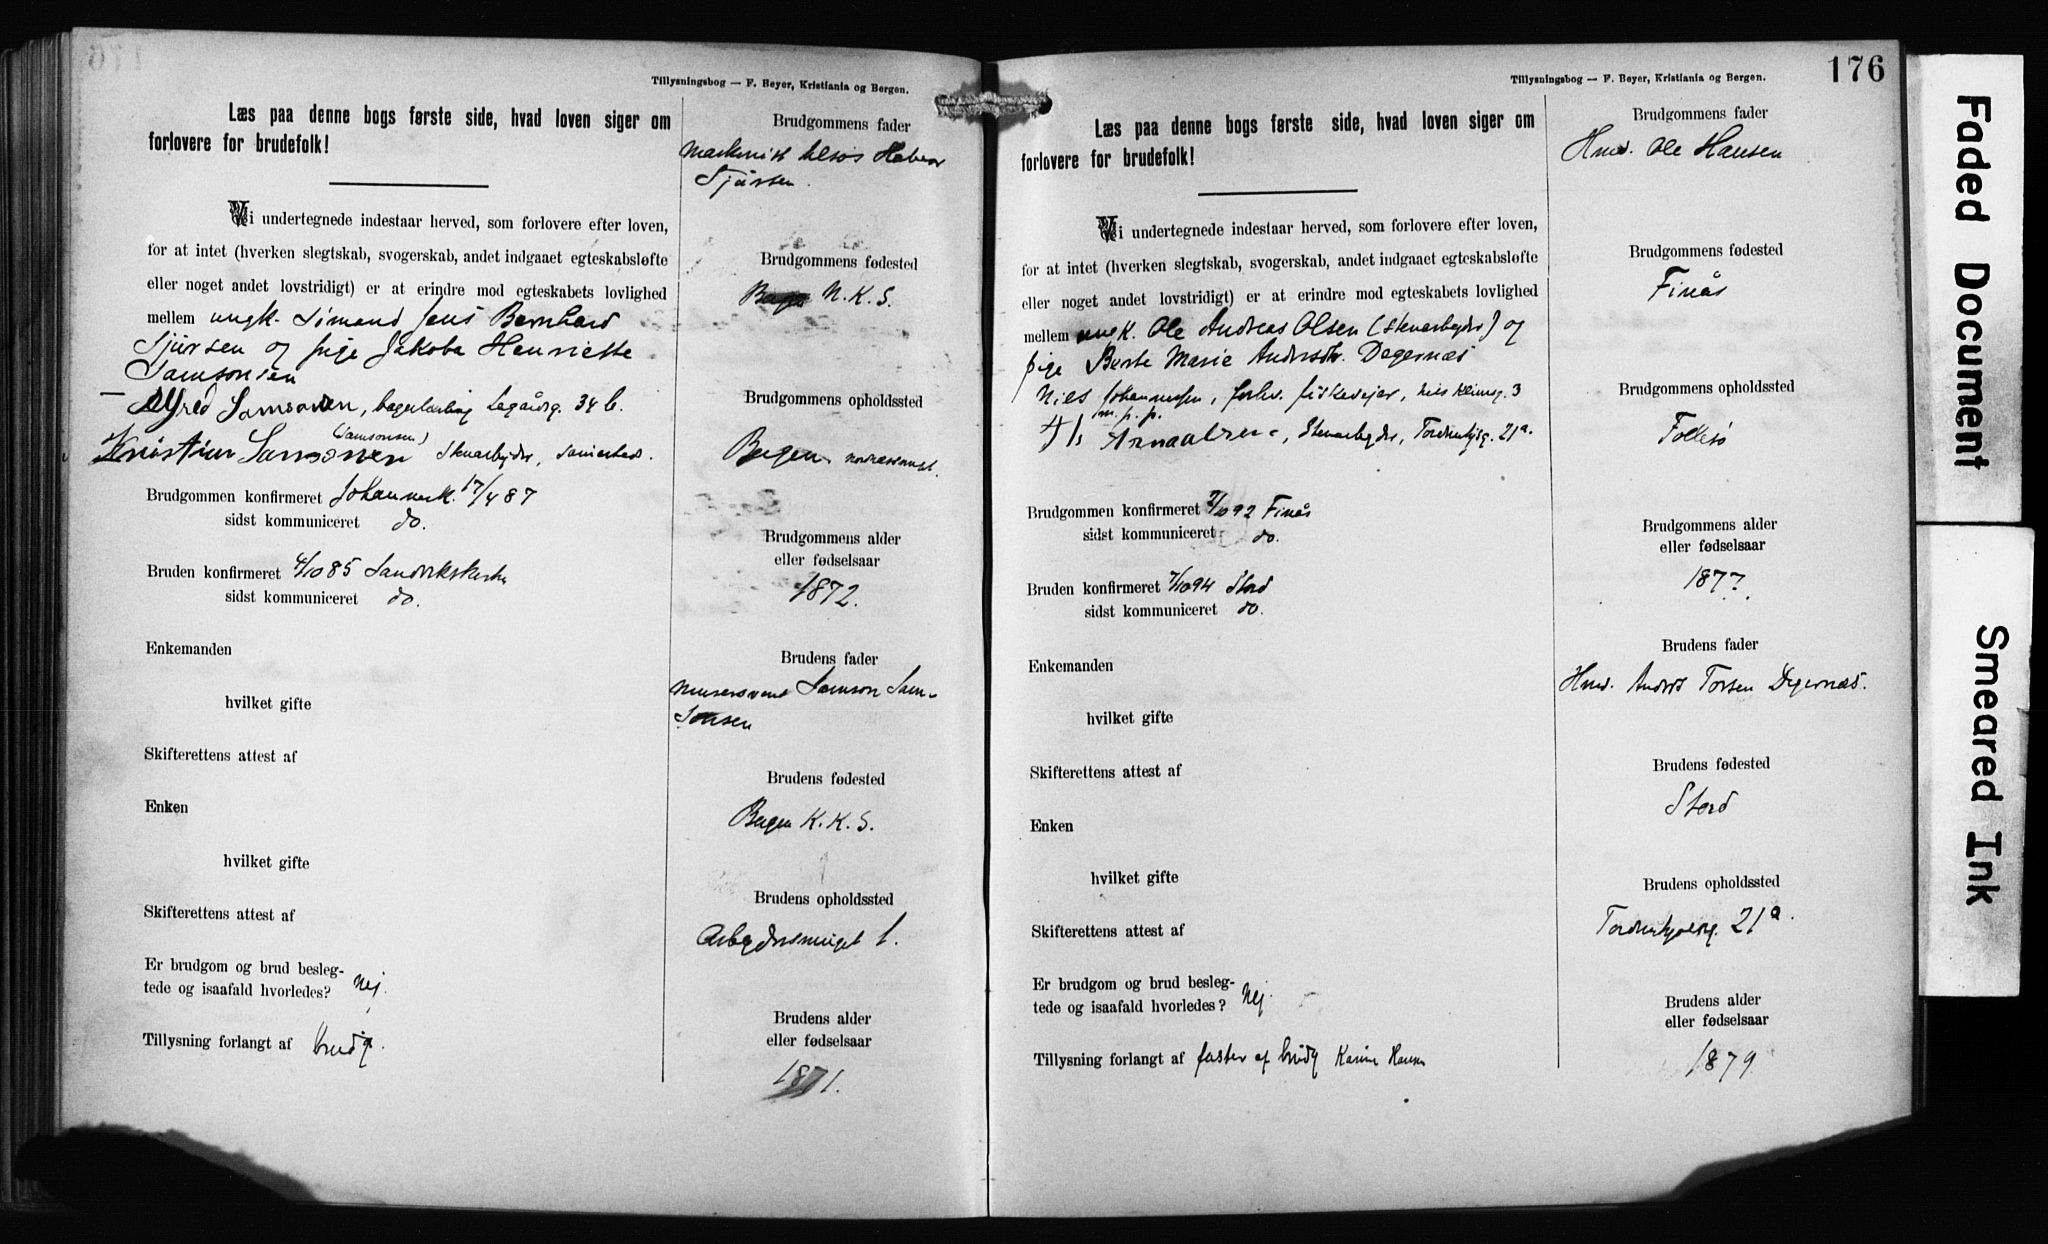 Tillysningsbog — F. Beyer, Kristiania og Bergen.
Læs paa denne bogs første side, hvad loven siger om
forlovere for brudefolk!
Vi undertegnede indestaar herved, som forlovere efter loven,
for at intet (hverken slegtskab, svogerskab, andet indgaaet egteskabsløfte
eller noget andet lovstridigt) er at erindre mod egteskabets lovlighed
mellem ungk. Simond Jens Bernhard
Sjursen og pige Jakoba Henriette
Samsonsen
Alfred Samsonsen, Lagårdsg. 34 b.
(Samsonsen)
Kristian Samsonsen Stenarbejder,
Brudgommen konfirmeret Johannesk. 17/4 87
sidst kommuniceret do.
Bruden konfirmeret 4/10 85 Sandvikskirke
sidst kommuniceret do.
Enkemanden
hvilket gifte
Skifterettens attest af
Enken
hvilket gifte
Skifterettens attest af
Er brudgom og brud besleg-
tede og isaafald hvorledes? Nej.
Tillysning forlangt af brudg.
Brudgommens fader
Sjursen.
Brudgommens fødested
N. K. S.
Brudgommens opholdssted
Bergen
Brudgommens alder
eller fødselsaar
1872.
Brudens fader
Murersvend Samson Sam-
sonsen
Brudens fødested
Bergen K. K. S.
Brudens opholdssted
Arbejdersmuget 1.
Brudens alder
eller fødselsaar
1871.
176
Tillysningsbog — F. Beyer, Kristiania og Bergen.
Læs paa denne bogs første side, hvad loven siger om
forlovere for brudefolk!
Vi undertegnede indestaar herved, som forlovere efter loven,
for at intet (hverken slegtskab, svogerskab, andet indgaaet egteskabsløfte
eller noget andet lovstridigt) er at erindre mod egteskabets lovlighed
mellem ungk. Ole Andreas Olsen (Stenarbejder) og
pige Berte Marie Andersdtr. Degernæs
Niels Johannessen, forhv. fiskevejer, Nels Klimsg. 3
m. p. p.
Stenarbejder, Tordenskjoldsg. 21a.
Brudgommen konfirmeret 2/10 92 Finås
sidst kommuniceret do.
Bruden konfirmeret 7/10 94 Stord
sidst kommuniceret do.
Enkemanden
hvilket gifte
Skifterettens attest af
Enken
hvilket gifte
Skifterettens attest af
Er brudgom og brud besleg-
tede og isaafald hvorledes? Nej.
Tillysning forlangt af faster af brudg Karine Hansen
Brudgommens fader
Hmd. Ole Hansen
Brudgommens fødested
Finås
Brudgommens opholdssted
Follesø
Brudgommens alder
eller fødselsaar
1877.
Brudens fader
Hmd. Anders Torsen Degernæs.
Brudens fødested
Stord
Brudens opholdssted
Tordenskjoldsg. 21a.
Brudens alder
eller fødselsaar
1879.
Faded Document
Smeared Ink